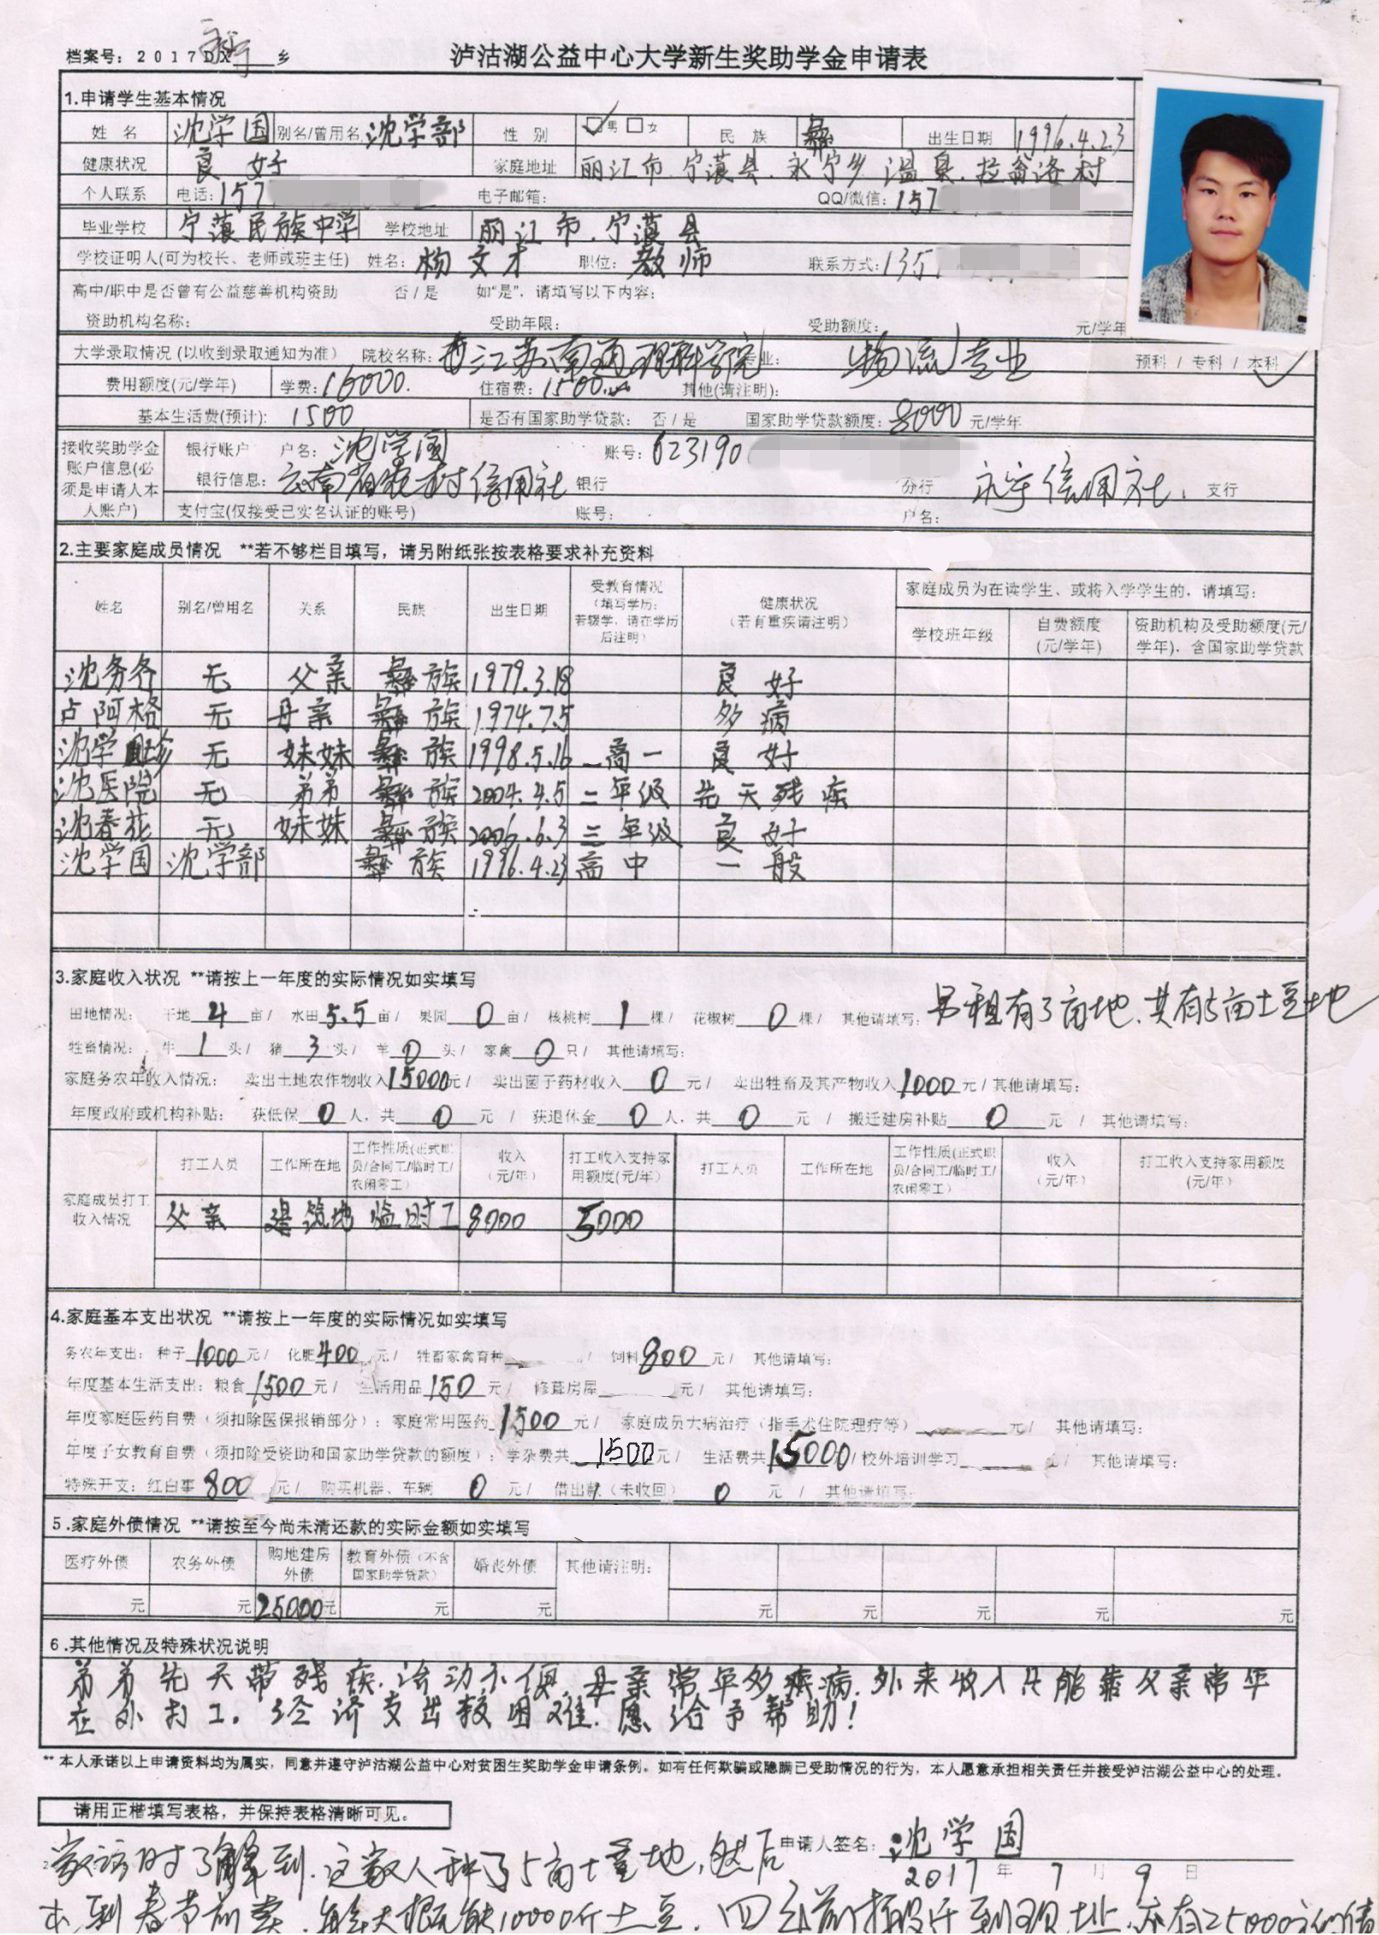 档案号：2017DX 永宁 乡
泸沽湖公益中心大学新生奖助学金申请表
1.申请学生基本情况
姓 名 沈学国 别名/曾用名 沈学部 性 别 ☑男 □女 民 族 彝 出生日期 1996.4.23
健康状况 良好 家庭地址 丽江市.宁蒗县.永宁乡.温泉.拉翁洛村
个人联系 电话：157 电子邮箱： QQ/微信：157
毕业学校 宁蒗民族中学 学校地址 丽江市.宁蒗县
学校证明人(可为校长、老师或班主任) 姓名：杨文才 职位：教师 联系方式：135
高中/职中是否曾有公益慈善机构资助 否 / 是 如“是”，请填写以下内容：
资助机构名称： 受助年限： 受助额度： 元/学年
大学录取情况（以收到录取通知为准） 院校名称：江苏南通理科学院 专业： 物流专业 预科 / 专科 / 本科 ✓
费用额度(元/学年) 学费：16000. 住宿费：1500. 其他(请注明)：
基本生活费(预计)： 1500 是否有国家助学贷款： 否 / 是 国家助学贷款额度：8000 元/学年
接收奖助学金账户信息(必须是申请人本人账户) 银行账户 户名：沈学国 账号：623190
银行信息：云南省农村信用社 银行 分行 永宁信用社. 支行
支付宝(仅接受已实名认证的账号) 账号： 户名：
2.主要家庭成员情况 **若不够栏目填写，请另附纸张按表格要求补充资料
姓名 别名/曾用名 关系 民族 出生日期 受教育情况（填写学历；若辍学，请在学历后注明） 健康状况（若有重疾请注明） 家庭成员为在读学生、或将入学学生的，请填写：
学校班年级 自费额度(元/学年) 资助机构及受助额度(元/学年)，含国家助学贷款
沈务各 无 父亲 彝族 1979.3.18 良好
卢阿格 无 母亲 彝族 1974.7.5 多病
沈学珍 无 妹妹 彝族 1998.5.16 高一 良好
沈医院 无 弟弟 彝族 2004.4.5 二年级 先天残疾
沈春花 无 妹妹 彝族 2006.6.3 三年级 良好
沈学国 沈学部 彝族 1996.4.23 高中 一般
3.家庭收入状况 **请按上一年度的实际情况如实填写
田地情况： 干地 4 亩/ 水田 5.5 亩/ 果园 0 亩/ 核桃树 1 棵/ 花椒树 0 棵/ 其他请填写：另租有3亩地.共有5亩土豆地
牲畜情况： 牛 1 头/ 猪 3 头/ 羊 0 头/ 家禽 0 只/ 其他请填写：
家庭务农年收入情况： 卖出土地农作物收入 15000 元/ 卖出菌子药材收入 0 元/ 卖出牲畜及其产物收入 1000 元/其他请填写：
年度政府或机构补贴： 获低保 0 人，共 0 元 / 获退休金 0 人，共 0 元 / 搬迁建房补贴 0 元 / 其他请填写：
家庭成员打工收入情况 打工人员 工作所在地 工作性质(正式职员/合同工/临时工/农闲零工) 收入(元/年) 打工收入支持家用额度(元/年) 打工人员 工作所在地 工作性质(正式职员/合同工/临时工/农闲零工) 收入(元/年) 打工收入支持家用额度(元/年)
父亲 建筑地 临时工 8000 5000
4.家庭基本支出状况 **请按上一年度的实际情况如实填写
务农年支出： 种子 1000 元/ 化肥 400 元/ 牲畜家禽育种 饲料 800 元/ 其他请填写：
年度基本生活支出：粮食 1500 元/ 生活用品 150 元/ 修葺房屋 元/ 其他请填写：
年度家庭医药自费（须扣除医保报销部分）：家庭常用医药 1500 元/ 家庭成员大病治疗（指手术住院理疗等） 元/ 其他请填写：
年度子女教育自费（须扣除受资助和国家助学贷款的额度）：学杂费共 1500 元/ 生活费共 15000 /校外培训学习 元/ 其他请填写：
特殊开支：红白事 800 元/ 购买机器、车辆 0 元/ 借出款（未收回） 0 元 / 其他请填写：
5.家庭外债情况 **请按至今尚未清还款的实际金额如实填写
医疗外债 农务外债 购地建房外债 教育外债（不含国家助学贷款） 婚丧外债 其他请注明：
元 元 25000元 元 元 元 元 元 元 元
6.其他情况及特殊状况说明
弟弟先天带残疾.活动不便.母亲常年多疾病.外来收入只能靠父亲常年
在外打工.经济支出较困难.愿给予帮助！
** 本人承诺以上申请资料均为属实，同意并遵守泸沽湖公益中心对贫困生奖助学金申请条例。如有任何欺骗或隐瞒已受助情况的行为，本人愿意承担相关责任并接受泸沽湖公益中心的处理。
请用正楷填写表格，并保持表格清晰可见。
申请人签名：沈学国
2017 年 7 月 9 日
家访时了解到.这家人种了5亩土豆地,然后
到春节前卖. 10000斤土豆. 25000元的债